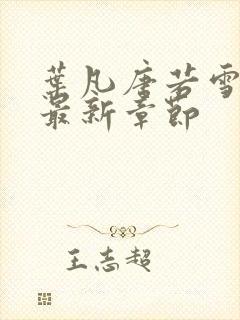 葉凡唐若雪
最新章節
王志超